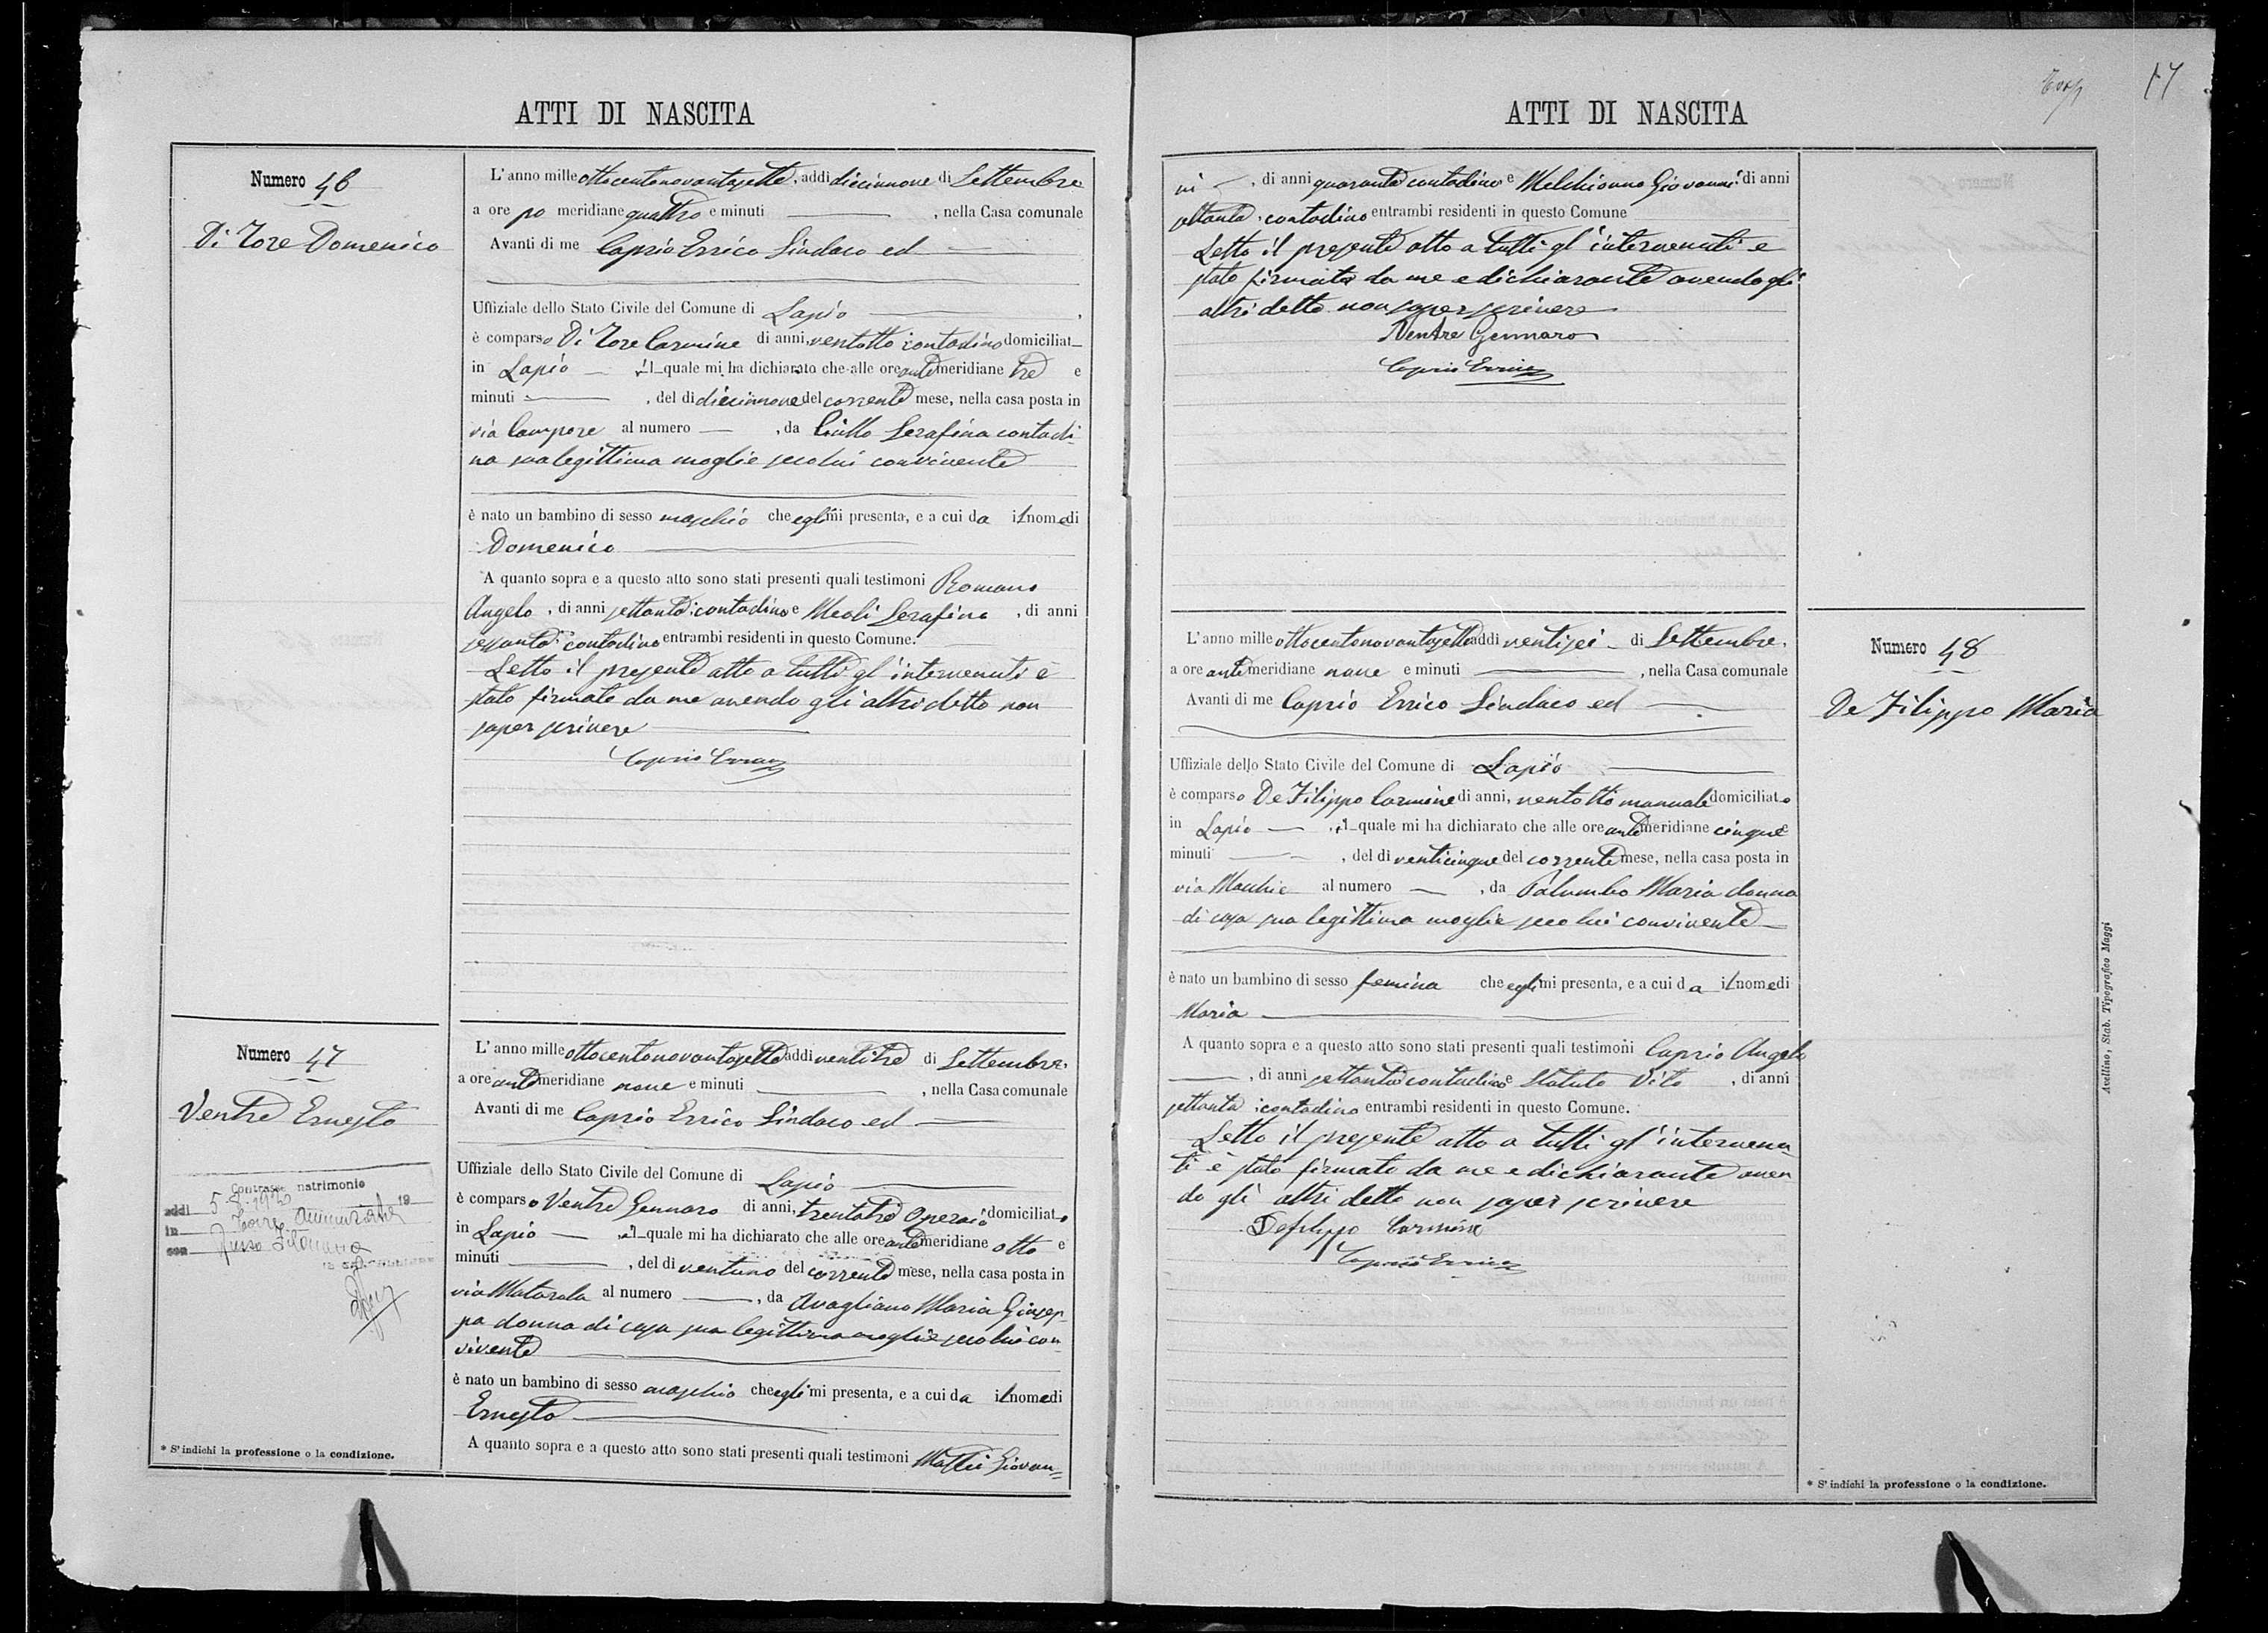 ATTI DI NASCITA
Numero 46
Di Tore Domenico
L'anno milleottocentonovantasette, addì diciannove di Settembre
a ore po meridiane quattro e minuti — , nella Casa comunale
Avanti di me Caprio Errico Sindaco ed —
Uffiziale dello Stato Civile del Comune di Lapio — ,
è comparso Di Tore Carmine di anni, ventotto contadino domiciliat
in Lapio — , il quale mi ha dichiarato che alle ore ante meridiane tre e
minuti — , del dì diciannove del corrente mese, nella casa posta in
via Campore al numero — , da Ciullo Serafina contadi-
na sua legittima moglie seco lui convivente
è nato un bambino di sesso maschio che egli mi presenta, e a cui da il nome di
Domenico —
A quanto sopra e a questo atto sono stati presenti quali testimoni Romano
Angelo , di anni settanta contadino e Meoli Serafino , di anni
sessanta contadino entrambi residenti in questo Comune.
Letto il presente atto a tutti gl'intervenuti è
stato firmato da me avendo gli altri detto non
saper scrivere
Caprio Errico
Numero 47
Ventre Ernesto
Contrasse matrimonio
addì 5 19
in Torre Annunziata
con Russo Filomena
L'anno milleottocentonovantasette addì ventitre di Settembre
a ore ante meridiane nove e minuti — , nella Casa comunale
Avanti di me Caprio Errico Sindaco ed —
Uffiziale dello Stato Civile del Comune di Lapio —
è comparso Ventre Gennaro di anni, trentatre operaio domiciliato
in Lapio — , il quale mi ha dichiarato che alle ore ante meridiane otto e
minuti — , del dì ventuno del corrente mese, nella casa posta in
via Matarala al numero — , da Avagliano Maria Giusep-
pa donna di casa sua legittima moglie seco lui con
vivente
è nato un bambino di sesso maschio che egli mi presenta, e a cui da il nome di
Ernesto —
A quanto sopra e a questo atto sono stati presenti quali testimoni Mattei Giovan=
* S'indichi la professione o la condizione.
17
ATTI DI NASCITA
ni — , di anni quaranta contadino e Melchionno Giovanni di anni
ottanta , contadino entrambi residenti in questo Comune
Letto il presente atto a tutti gl'intervenuti e
stato firmato da me e dichiarante avendo gli
altri detto non saper scrivere
Ventre Gennaro
Caprio Errico
Numero 48
De Filippo Maria
L'anno milleottocentonovantasette addì ventisei di Settembre
a ore ante meridiane nove e minuti — , nella Casa comunale
Avanti di me Caprio Errico Sindaco ed —
Uffiziale dello Stato Civile del Comune di Lapio —
è comparso De Filippo Carmine di anni, ventotto manuale domiciliato
in Lapio — , il quale mi ha dichiarato che alle ore ante meridiane cinque
minuti — , del dì venticinque del corrente mese, nella casa posta in
via Macchie al numero — , da Palumbo Maria donna
di casa sua legittima moglie seco lui convivente
è nato un bambino di sesso femina che egli mi presenta, e a cui da il nome di
Maria —
A quanto sopra e a questo atto sono stati presenti quali testimoni Caprio Angelo
— , di anni settanta contadino e Statuto Vito , di anni
settanta contadino entrambi residenti in questo Comune.
Letto il presente atto a tutti gl'intervenu
ti è stato firmato da me e dichiarante aven
do gli altri detto non saper scrivere
Defilippo Carmine
Caprio Errico
* S'indichi la professione o la condizione.
Avellino, Stab. Tipografico Maggi